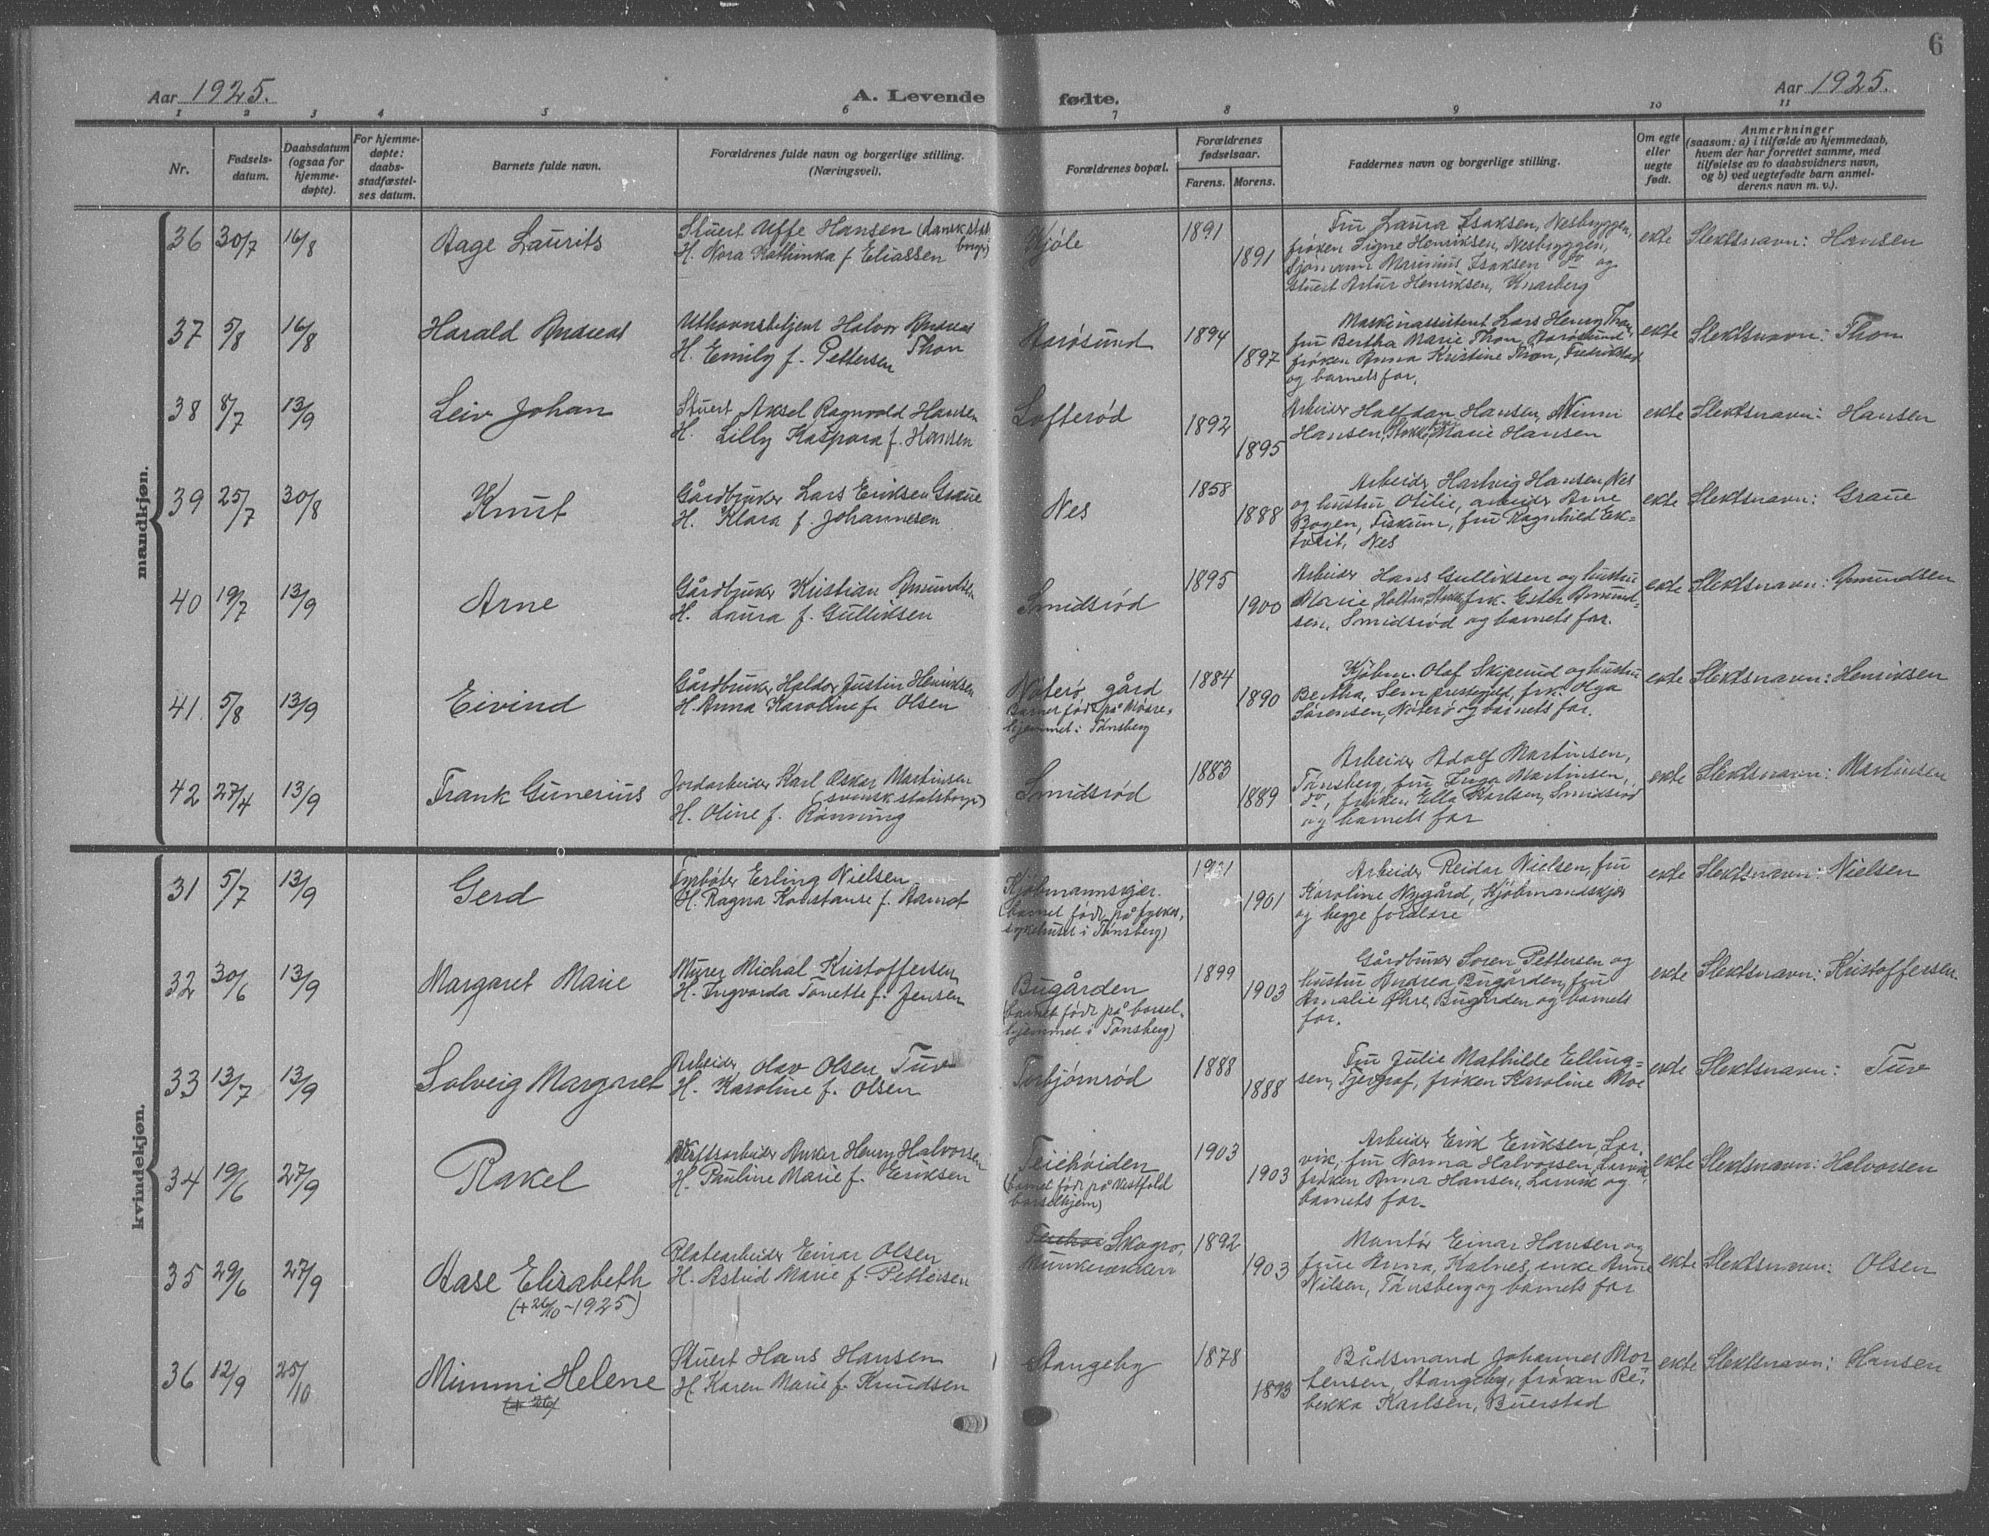 6
Aar 1925.
A. Levende fødte.
Aar 1925.
1 2 3 4 5 6 7 8 9 10 11
Nr.
Fødsels-
datum.
Daabsdatum
(ogsaa for
hjemme-
døpte).
For hjemme-
døpte:
daabs-
stadfæstel-
ses datum.
Barnets fulde navn.
Forældrenes fulde navn og borgerlige stilling.
(Næringsvei).
Forældrenes bopæl.
Forældrenes
fødselsaar.
Farens. Morens.
Faddernes navn og borgerlige stilling.
Om egte
eller
uegte
født.
Anmerkninger
(saasom: a) i tilfælde av hjemmedaab,
hvem der har forrettet samme, med
tilføielse av to daabsvidners navn,
og b) ved uegtefødte barn anmel-
derens navn m. v.).
mandkjøn.
36 30/7 16/8
Aage Laurits
Stuert Uffe Hansen (dansk stats
borger)
H. Nora Kathinka f. Eliassen
Kjøle
1891
1891
Fru Laura Isaksen, Nesbryggen,
frøken Signe Henriksen, Nesbryggen,
Sjømann Marinius Isaksen do og
Stuert Artur Henriksen, Knarberg
ekte
Slektsnavn: Hansen
37 5/8 16/8
Harald Andreas
Uthavnsbetjent Halvor Andreas
Thon
H. Emily f. Pettersen
Aarøsund
1894
1897
Maskinassistent Lars Henry Thon,
fru Bertha Marie Thon, Aarøsund
frøken Anna Kristine Thon, Fredrikstad
og barnets far.
ekte
Slektsnavn: Thon
38 8/7 13/9
Leiv Johan
Stuert Aksel Ragnvald Hansen
H. Lilly Kaspara f. Hansen
Lofterød
1892
1895
Arbeider Halfdan Hansen, Ninni
Hansen, Stokke, Marie Hansen
ekte
Slektsnavn: Hansen
39 25/7 30/8
Knut
Gårdbruker Lars Eriksen Graue
H. Klara f. Johannesen
Nes
1858
1888
Arbeider Hartvig Hansen, Nes
og hustru Otilie, arbeider Arne
Bogen, Fiskum, fru Ragnhild Ek-
tveit, Nes
ekte
Slektsnavn: Graue
40 19/7 13/9
Arne
Gårdbruker Kristian Amundsen
H. Laura f. Gulliksen
Smidsrød
1895
1900
Arbeider Hans Gulliksen og hustru
Marie Holtan, Stokke, frk. Ester Amund-
sen, Smidsrød og barnets far.
ekte
Slektsnavn: Amundsen
41. 5/8 13/9
Eivind
Gårdbruker Haldor Justin Henriksen
H. Anna Karoline f. Olsen
Nøterø gård
Barnet født på Mødre-
hjemmet i Tønsberg
1884
1890
Kjøbm. Olaf Skiperud og hustru
Bertha, Sem prestegjeld, frk. Olga
Sørensen, Nøterø og barnets far.
ekte
Slektsnavn: Henriksen
42 27/4 13/9
Frank Gunerius
Jordarbeider Karl Oskar Martinsen
(svensk statsborger)
H. Oline f. Rønning
Smidsrød
1883
1889
Arbeider Adolf Martinsen,
Tønsberg, fru Inga Martinsen,
do, frøken Ella Karlsen, Smidsrød
og barnets far
ekte
Slektsnavn: Martinsen
kvindekjøn.
31 5/7 13/9
Gerd
Fyrbøter Erling Nielsen
H. Ragna Konstanse f. Ramdt
Kjøbmannskjær
(barnet født på fylkes-
sykehuset i Tønsberg)
1901
1901
Arbeider Reidar Nielsen, fru
Karoline Nygård, Kjøbmandsskjær
og begge foreldre
ekte
Slektsnavn: Nielsen
32 30/6 13/9
Margaret Marie
Murer Michal Kristoffersen
H. Ingvarda Tonette f. Jensen
Bugården
(barnet født på barsel-
hjemmet i Tønsberg)
1899
1903
Gårdbruker Soren Pettersen og
hustru Andrea Bugården, fru
Amalie Øhre, Bugården og barnets
far.
ekte
Slektsnavn: Kristoffersen
33 13/7 13/9
Solveig Margaret
Arbeider Olav Olsen Tuv
H. Karoline f. Olsen
Torbjørnrød
1888
1888
Fru Julie Mathilde Elling-
sen, Tjevgraf, frøken Karoline Moe
ekte
Slektsnavn: Tuv
34 19/6 27/9
Rakel
Verftsarbeider Anker Henry Halvorsen
H. Pauline Marie f. Eriksen
Teiehøiden
(barnet født på Vestfold
barselhjem)
1903
1903
Arbeider Erik Eriksen, Lar-
vik, fru Norma Halvorsen, Larvik,
frøken Anna Hansen, Larvik og
barnets far.
ekte
Slektsnavn: Halvorsen
35 29/6 27/9
Aase Elisabeth
(+ 26/10-1925)
Platearbeider Einar Olsen
H. Astrid Marie f. Pettersen
Skogro,
Munkerekken
1892
1903
Montør Einar Hansen og
frue Anna, Kalnes, enke Anne
Nilsen, Tønsberg og barnets far
ekte
Slektsnavn: Olsen
36 12/9 25/10
Mimmi Helene
(+ 26/
Stuert Hans Hansen
H. Karen Marie f. Knudsen
Stangeby
1878
1893
Bådsmand Johannes Mor
tensen, Stangeby, frøken Re-
bekka Karlsen, Buerstad
ekte
Slektsnavn: Hansen